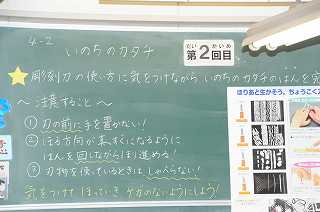 4-2
いのちのカタチ
第2回目
だい かいめ
☆彫刻刀の使い方に気をつけながら いのちのカタチのはんを完
～注意すること～
① 刃の前に手を置かない!
② ほる方向がまっすぐになるように
はんを回しながらほり進める!
③ 刃物を使っているときはしゃべらない!
気をつけて ほっていき ケガのないようにしよう!
ほりあと生かそう、ちょうこくと